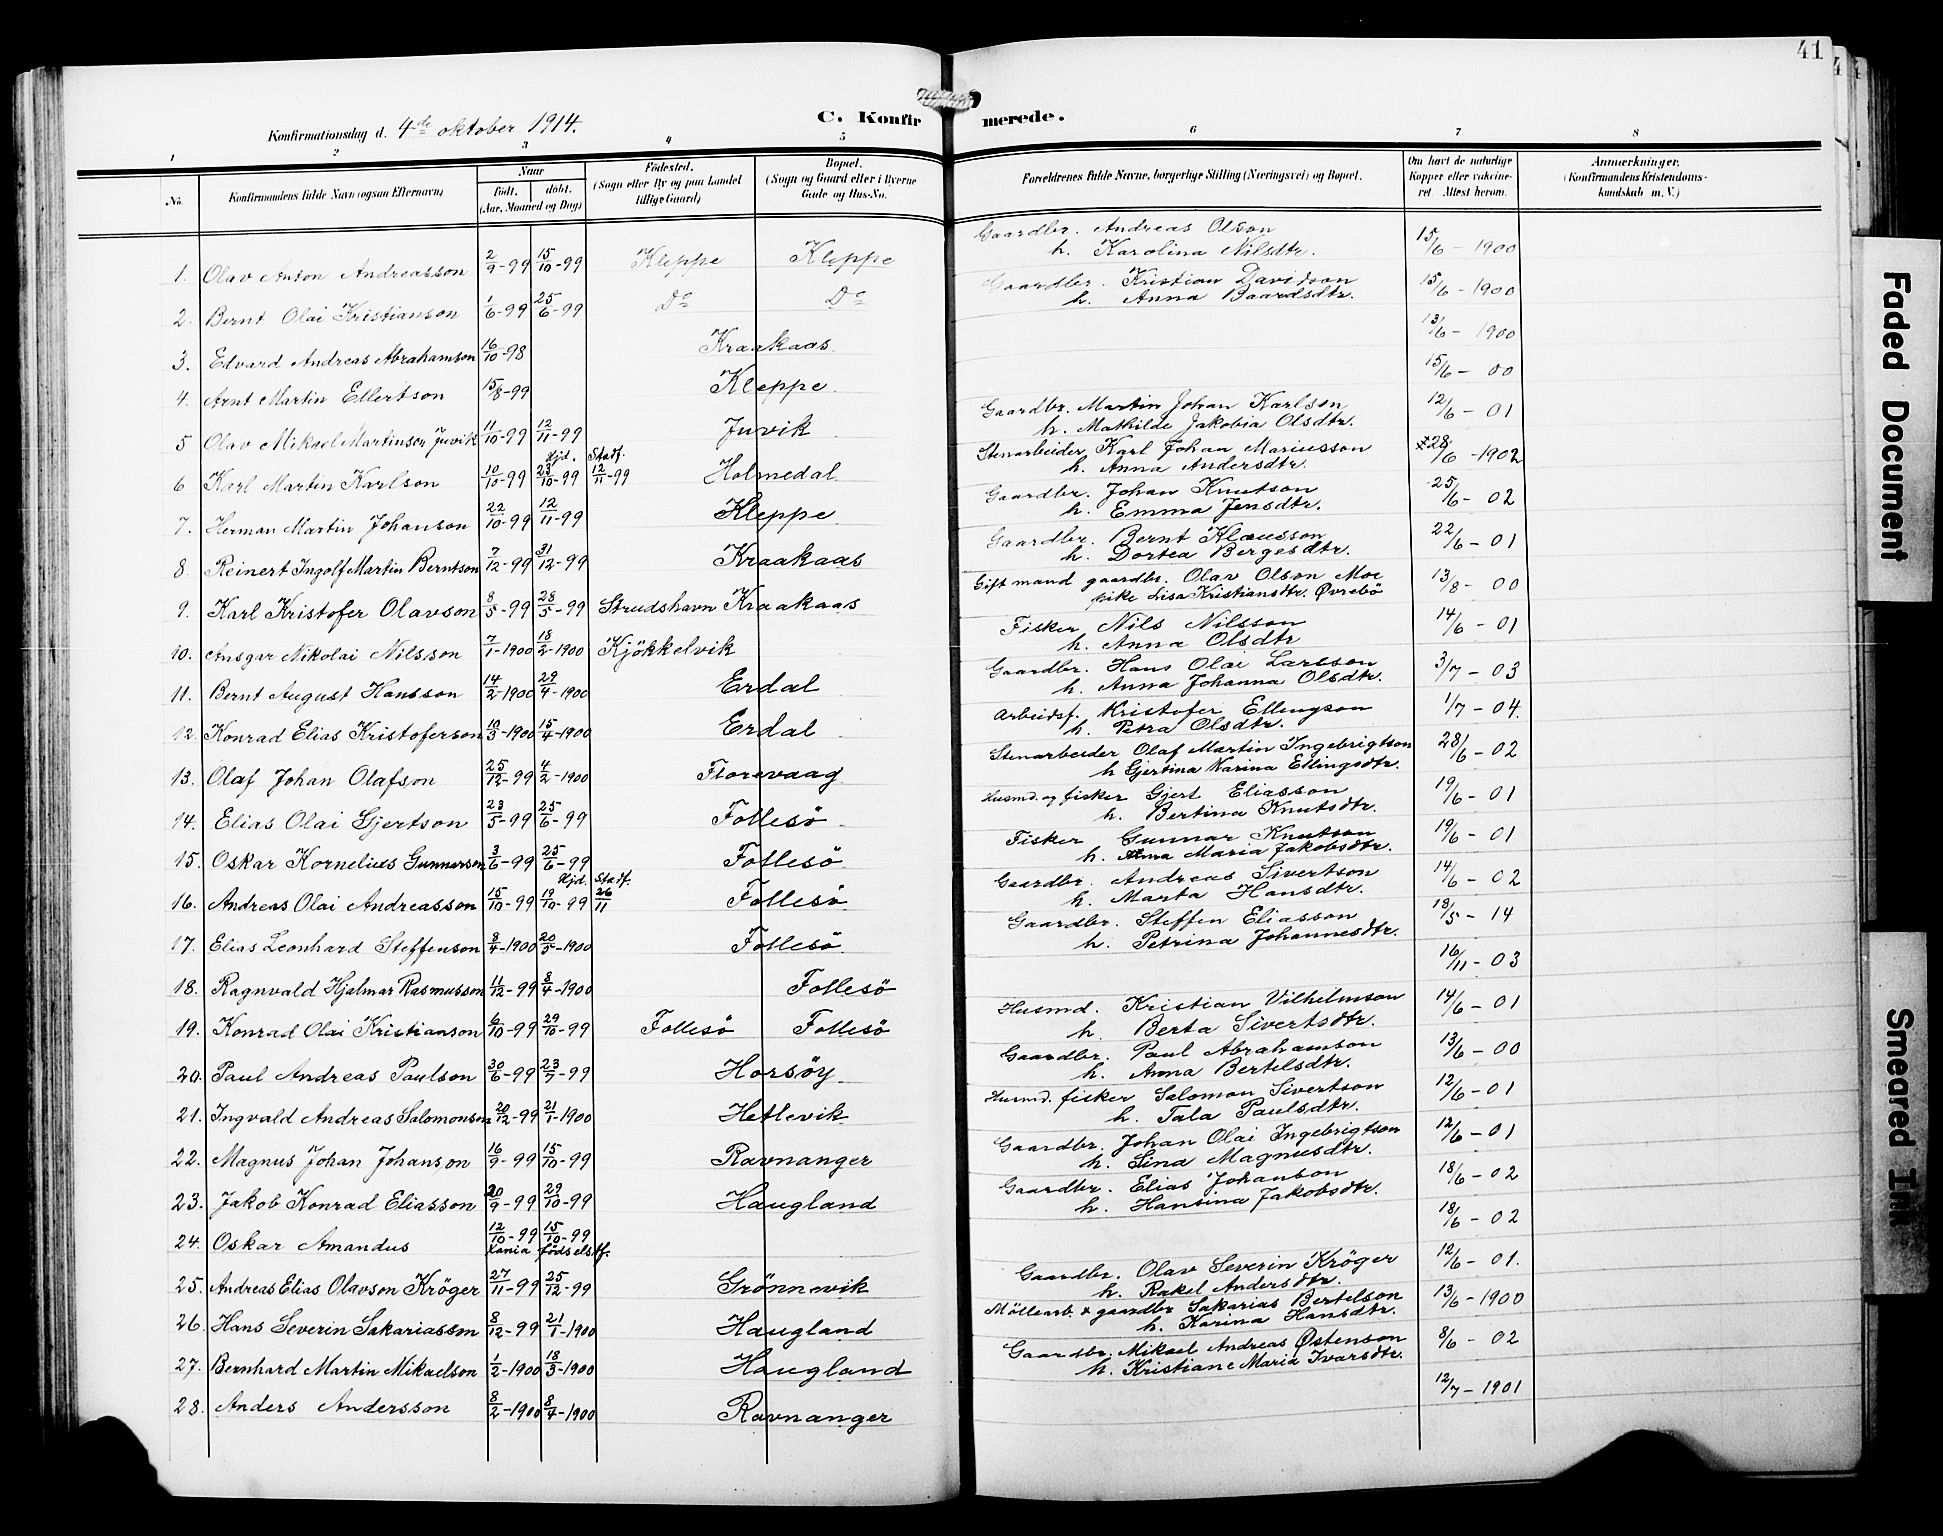 41
Konfirmationsdag d. 4de oktober 1914.
C. Konfirmerede.
1 2 3 4 5 6 7 8
No.
Konfirmandens fulde Navn (ogsaa Efternavn)
Naar
født. døbt.
(Aar, Maaned og Dag)
Fødested.
(Sogn eller By og paa Landet
tillige Gaard)
Bopæl.
(Sogn og Gaard eller i Byerne
Gade og Hus-No.
Forældrenes fulde Navne, borgerlige Stilling (Næringsvei) og Bopæl.
Om havt de naturlige
Kopper eller vakcine-
ret. Attest herom.
Anmærkninger.
(Konfirmandens Kristendoms-
kundskab m. V.)
1. Olav Anton Andreasson 2/9-99 15/10-99 Kleppe Kleppe Gaardbr. Andreas Olson 15/6 - 1900
h. Karolina Nilsdtr.
2. Bernt Olai Kristianson 1/6-99 25/6-99 Do Do Gaardbr. Kristian Davidson 15/6 - 1900
h. Anna Baardsdtr.
3. Edvard Andreas Abrahamson 16/10-98 Kraakaas 13/6 - 1900
4. Arnt Martin Ellertson 15/8-99 Kleppe 15/6 - 00
5 Olav Mikael Martinson Juvik 11/10-99 12/11-99 Juvik Gaardbr. Martin Johan Karlson 12/6 - 01
h. Mathilde Jakobia Olsdtr.
Hjd. Stadf.
6 Karl Martin Karlson 10/10-99 23/10-99 12/11-99 Holmedal Stenarbeider Karl Johan Mariusson 28/6 - 1902
h. Anna Andersdtr.
7. Herman Martin Johanson 22/10-99 12/11-99 Kleppe Gaardbr. Johan Knutson 25/6 - 02
h. Emma Jensdtr.
8. Reinert Ingolf Martin Berntson 7/12-99 31/12-99 Kraakaas Gaardbr. Bernt Klausson 22/6 - 01
h. Dortea Bergesdtr.
9. Karl Kristofer Olavson 8/5-99 28/5-99 Strudshavn Kraakaas Gift mand gaardbr. Olav Olson Moe 13/8 - 00
pike Lisa Kristiansdtr. Øvrebö
10. Ansgar Nikolai Nilsson 7/1-1900 18/2-1900 Kjökkelvik Fisker Nils Nilsson 14/6 - 01
h. Anna Olsdtr
11. Bernt August Hansson 14/2-1900 29/4-1900 Erdal Gaardbr. Hans Olai Larsson 3/7 - 03
h. Anna Johanna Olsdtr.
12. Konrad Elias Kristoferson 10/3-1900 15/4-1900 Erdal Arbeidsf. Kristofer Ellingson 1/7 - 04.
h. Petra Olsdtr.
13. Olaf Johan Olafson 25/12-99 4/2-1900 Florvaag Stenarbeider Olaf Martin Ingebrigtson 28/6 - 02
h Gjertina Karina Ellingsdtr.
14. Elias Olai Gjertson 23/5-99 25/6-99 Follesö Husmd. og fisker Gjert Eliasson 19/6 - 01
h. Bertina Knutsdtr.
15. Oskar Kornelius Gunnarson 3/6-99 25/6-99 Follesö Fisker Gunnar Knutson 19/6 - 01
h. Anna Maria Jakobsdtr.
Hjd. Stadf.
16. Andreas Olai Andreasson 15/10-99 19/10-99 26/11 Follesö Gaardbr. Andreas Sivertson 14/6 - 02
h. Marta Hansdtr.
17. Elias Leonhard Steffenson 8/4-1900 20/5-1900 Follesö Gaardbr. Steffen Eliasson 13/5 - 14
h. Petrina Johannesdtr.
18. Ragnvald Hjalmar Rasmusson 11/12-99 8/4-1900 Follesö 16/11 - 03
19. Konrad Olai Kristianson 6/10-99 29/10-99 Follesö Follesö Husmd. Kristian Vilhelmson 14/6 - 01
h. Berta Sivertsdtr.
20. Paul Andreas Paulson 30/6-99 23/7-99 Horsöy Gaardbr. Paul Abrahamson 13/6 - 00
h. Anna Bertelsdtr.
21. Ingvald Andreas Salomonson 20/12-99 21/1-1900 Hetlevik Husmd. fisker Salomon Sivertson 12/6 - 01
h. Tala Paulsdtr.
22. Magnus Johan Johanson 16/9-99 15/10-99 Ravnanger Gaardbr. Johan Olai Ingebrigtson 12/6 - 01
h. Lina Magnusdtr.
23. Jakob Konrad Eliasson 20/9-99 29/10-99 Haugland Gaardbr. Elias Johanson 18/6 - 02
h. Hansina Jakobsdtr.
24. Oskar Amandus 12/10-99 15/10-99 18/6 - 02
födselstf.
25. Andreas Elias Olavson Kröger 27/11-99 25/12-99 Grönnevik Gaardbr. Olav Severin Kröger 12/6 - 01.
h. Rakel Andersdtr.
26. Hans Severin Sakariasson 8/12-99 21/1-1900 Haugland Möllearb. & gaardbr Sakarias Bertelson 13/6 - 1900
h. Karina Hansdtr.
27. Bernhard Martin Mikaelson 1/2-1900 18/3-1900 Haugland Gaardbr. Mikael Andreas Østenson 8/6 - 02
h. Kristiane Maria Ivarsdtr.
28. Anders Andersson 8/2-1900 8/4-1900 Ravnanger 12/7 - 1901
Faded Document
Smeared Ink